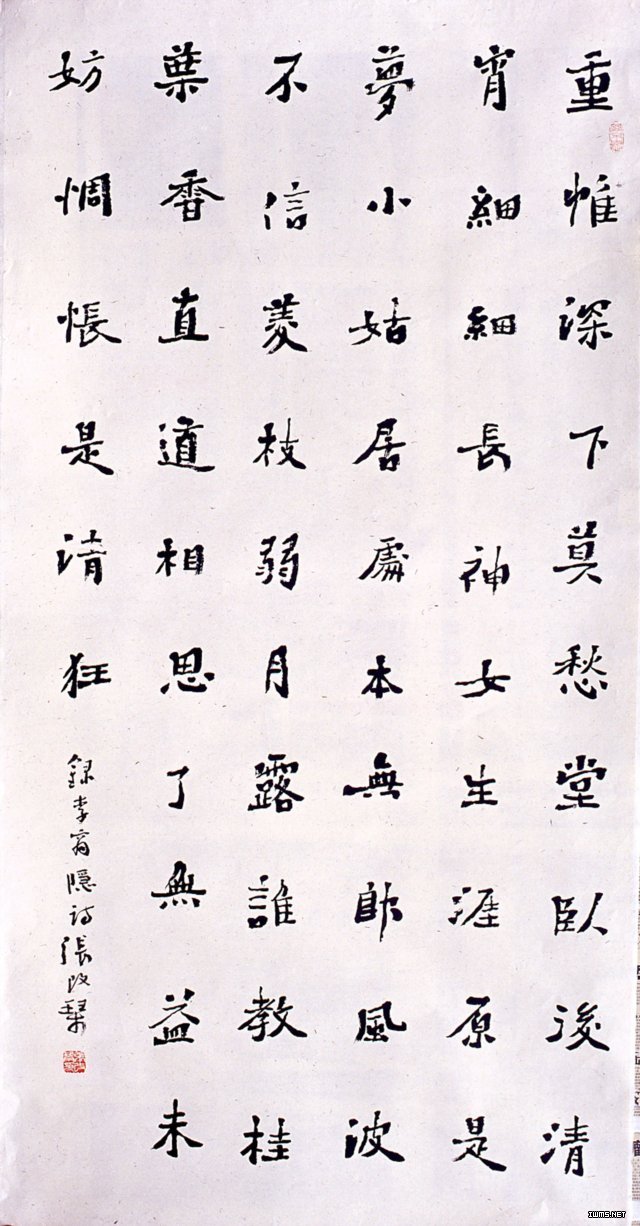 重帷深下莫愁堂臥後清
宵細細長神女生涯原是
夢小姑居處本無郎風波
不信菱枝弱月露誰教桂
葉香直道相思了無益未
妨惆悵是清狂
錄李商隱詩張改琹
IWMS.NET